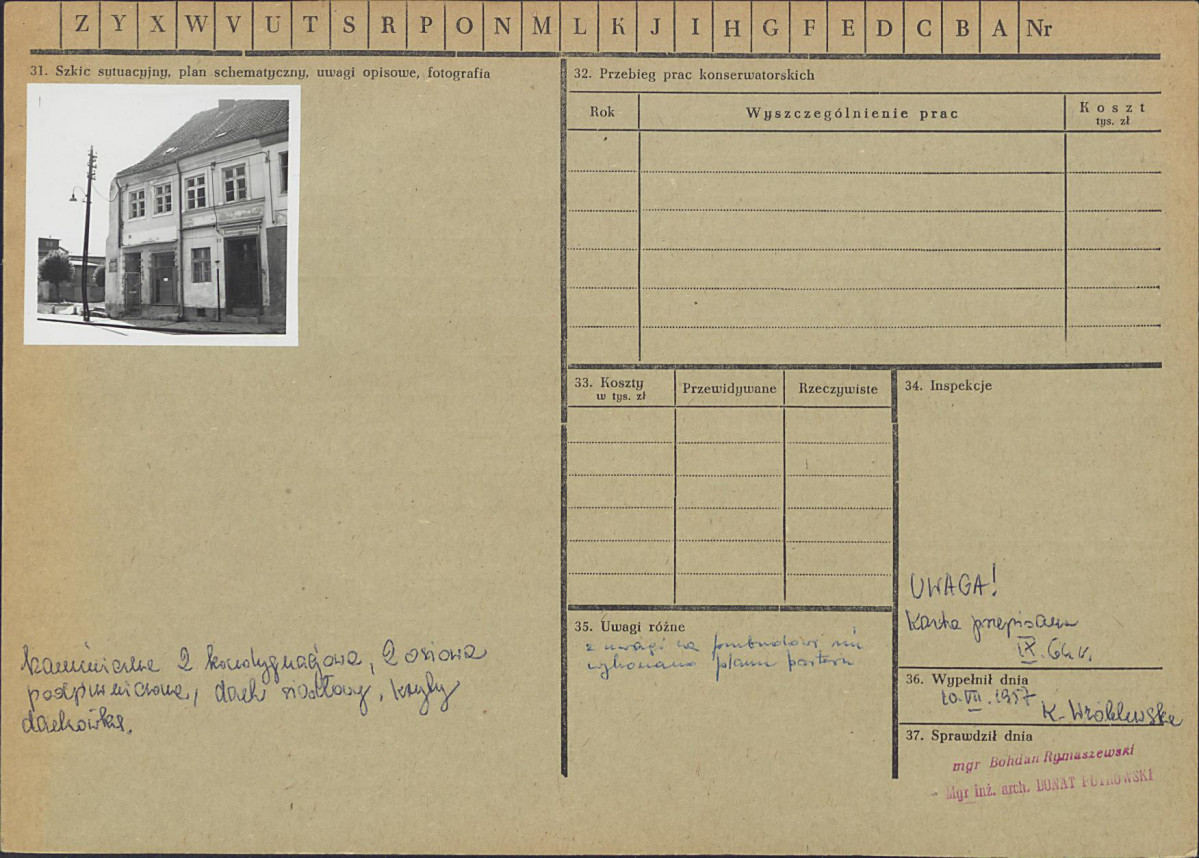 Z Y X W V U T S R P O N M L K J I H G F E D C B A Nr
31. Szkic sytuacyjny, plan schematyczny, uwagi opisowe, fotografia
kamieniczka 2 kondygnacjowa, 2 osiowa
podpiwniczona, dach siodłowy, kryty
dachówką.
32. Przebieg prac konserwatorskich
Rok
Wyszczególnienie prac
Koszt
tys. zł
33. Koszty
w tys. zł
Przewidywane
Rzeczywiste
34. Inspekcje
UWAGA!
Karta przepisana
IX. 64 r.
35. Uwagi różne
z uwagi na przebudowę nie
wykonano planu parteru
36. Wypełnił dnia
10.VII.1957
K. Wróblewska
37. Sprawdził dnia
mgr Bohdan Rymaszewski
Mgr inż. arch. DONAT